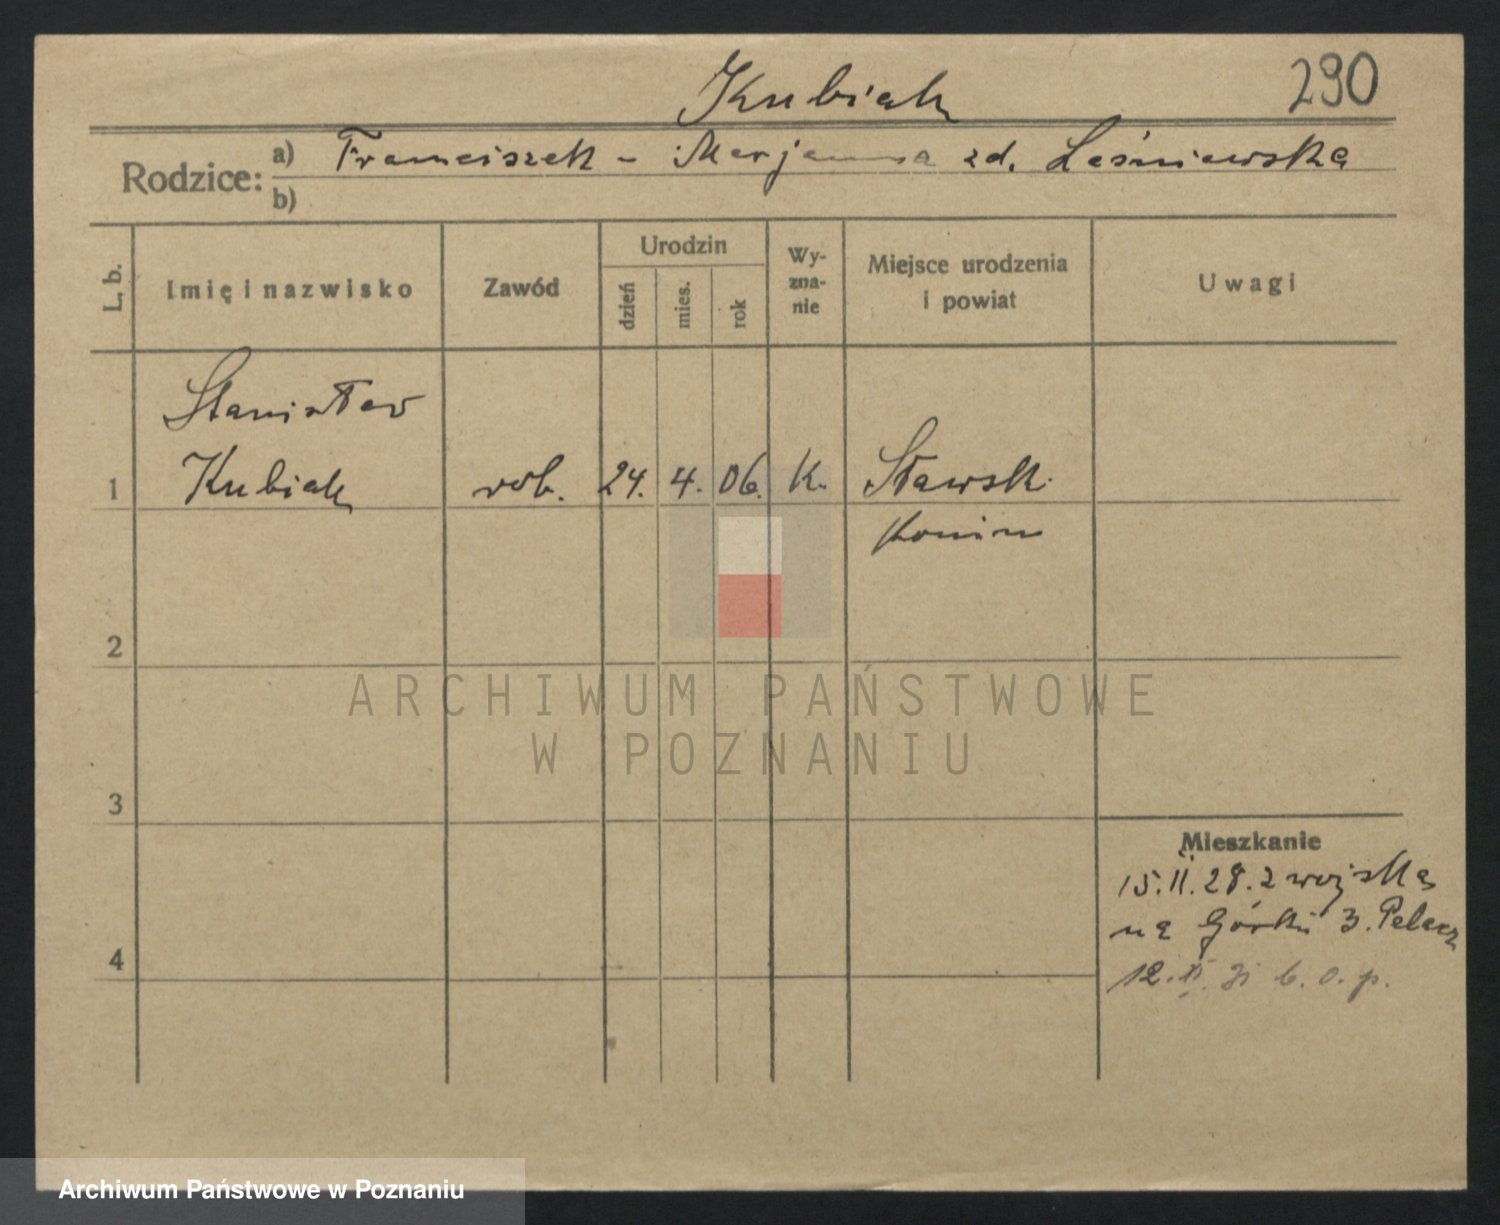 Kubiak
290
Rodzice: a) Franciszek - Marjanna zd. Leśniewska
b)
L. b.
Imię i nazwisko
Zawód
Urodzin
dzień
mies.
rok
Wy-
zna-
nie
Miejsce urodzenia
i powiat
Uwagi
Stanisław
1 Kubiak rob. 24. 4. 06. K. Sławsk
Konin
2
ARCHIWUM PAŃSTWOWE
W POZNANIU
3
Mieszkanie
15.II.28. z wojska
na Górki 3.
4
12. XI. 31 b. o. p.
Archiwum Państwowe w Poznaniu